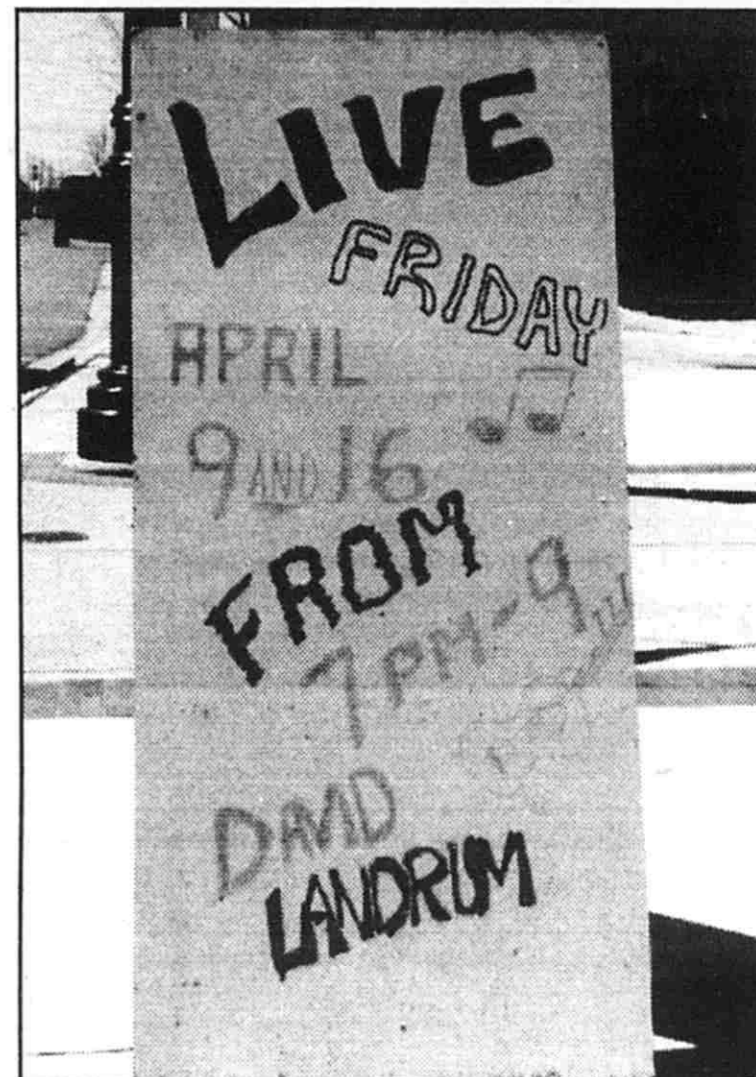 LIVE
FRIDAY
APRIL
9 AND 16
FROM
7PM-9
DAVID
LANDRUM